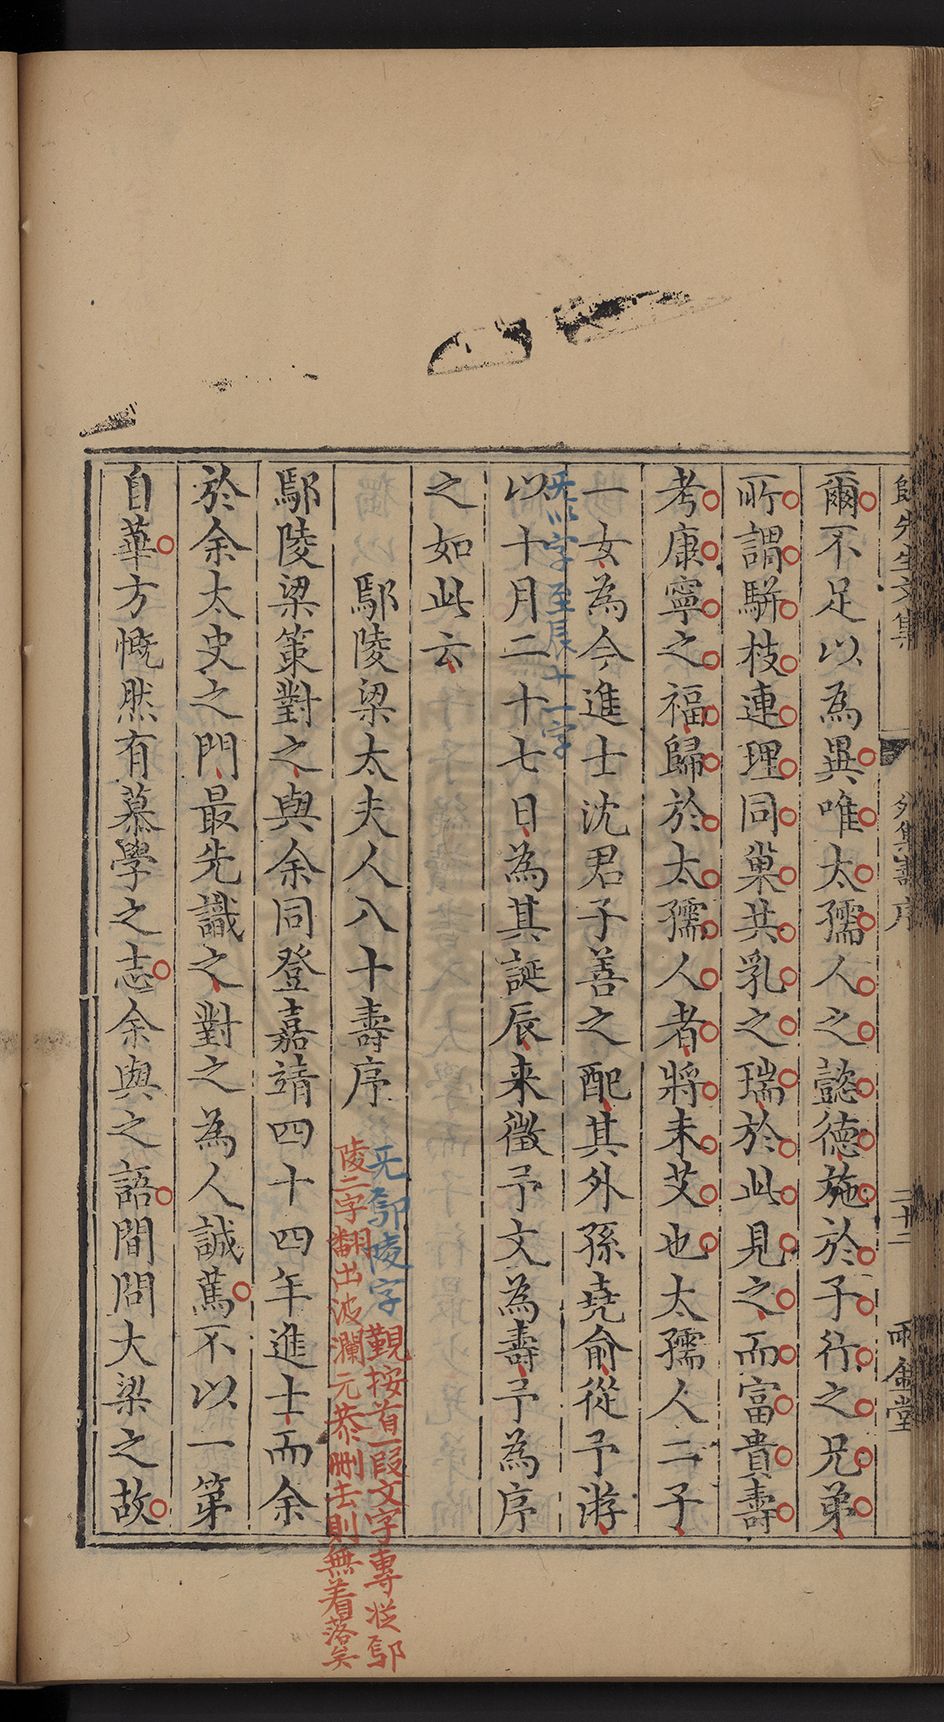 歸先生文集 外集壽序 二十二 雨金堂
爾不足以為異唯太孺人之懿德施於子行之兄弟
所謂駢枝連理同巢共乳之瑞於此見之而富貴壽
考康寧之福歸於太孺人者將未艾也太孺人二子
一女為今進士沈君子善之配其外孫堯俞從予游
无以字至辰十一字
以十月二十七日為其誕辰来徵予文為壽予為序
之如此云
鄢陵梁太夫人八十壽序
无鄢陵字
觀按首一段文字專從鄢
陵二字翻出波瀾元恭刪去則無着落矣
鄢陵梁策對之與余同登嘉靖四十四年進士而余
於余太史之門最先識之對之為人誠篤不以一第
自華方慨然有慕學之志余與之語間問大梁之故